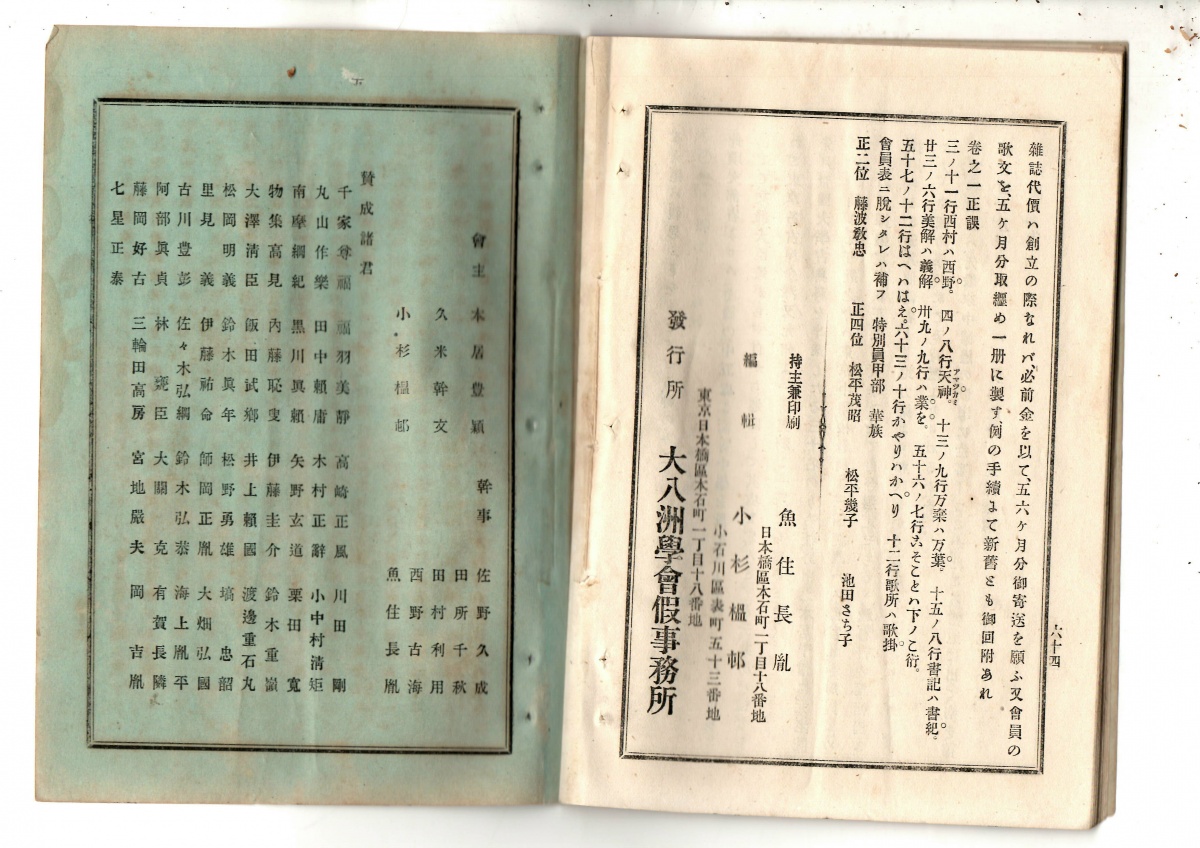 六十四
雜誌代價ハ創立の際なれバ必前金を以て、五六ケ月分御寄送を願ふ又會員の
歌文を、五ケ月分取纒め一册に製す、例の手續よて新舊とも御回附あれ
卷之一正誤
三ノ十一行西村ハ西野。 四ノ八行天神。アマツカミ 十三ノ九行万楽ハ万葉。 十五ノ八行書記ハ書紀。
廿三ノ六行美解ハ義解。 卅九ノ九行ハ業を。 五十六ノ七行こそことハ下ノこ衍。
五十七ノ十二行はへハはえ。六十三ノ十行かやりハかへり 十二行歌所ハ歌掛。
會員表ニ脫シタレハ補フ 特別員甲部 華族
正二位 藤波敎忠 正四位 松平茂昭 松平幾子 池田さち子
持主兼印刷 魚住長胤
日本橋區本石町一丁目十八番地
編輯 小杉榲邨
小石川區表町五十三番地
東京日本橋區本石町一丁目十八番地
發行所 大八洲學會假事務所
五
會主 本居豊穎 幹事 佐野久成
久米幹文 田所千秋
田村利用
小杉榲邨 西野古海
魚住長胤
賛成諸君
千家尊福 福羽美靜 高崎正風 川田剛
丸山作樂 田中賴庸 木村正辭 小中村淸矩
南摩綱紀 黑川眞賴 矢野玄道 栗田寬
物集高見 內藤恥叟 伊藤圭介 鈴木重嶺
大澤淸臣 飯田武鄕 井上賴國 渡邊重石丸
松岡明義 鈴木眞年 松野勇雄 塙忠韶
里見義 伊藤祐命 師岡正胤 大畑弘國
古川豊彭 佐々木弘綱 鈴木弘恭 海上胤平
阿部眞貞 林甕臣 大關克 有賀長隣
藤岡好古 三輪田高房 宮地嚴夫 岡吉胤
七星正泰